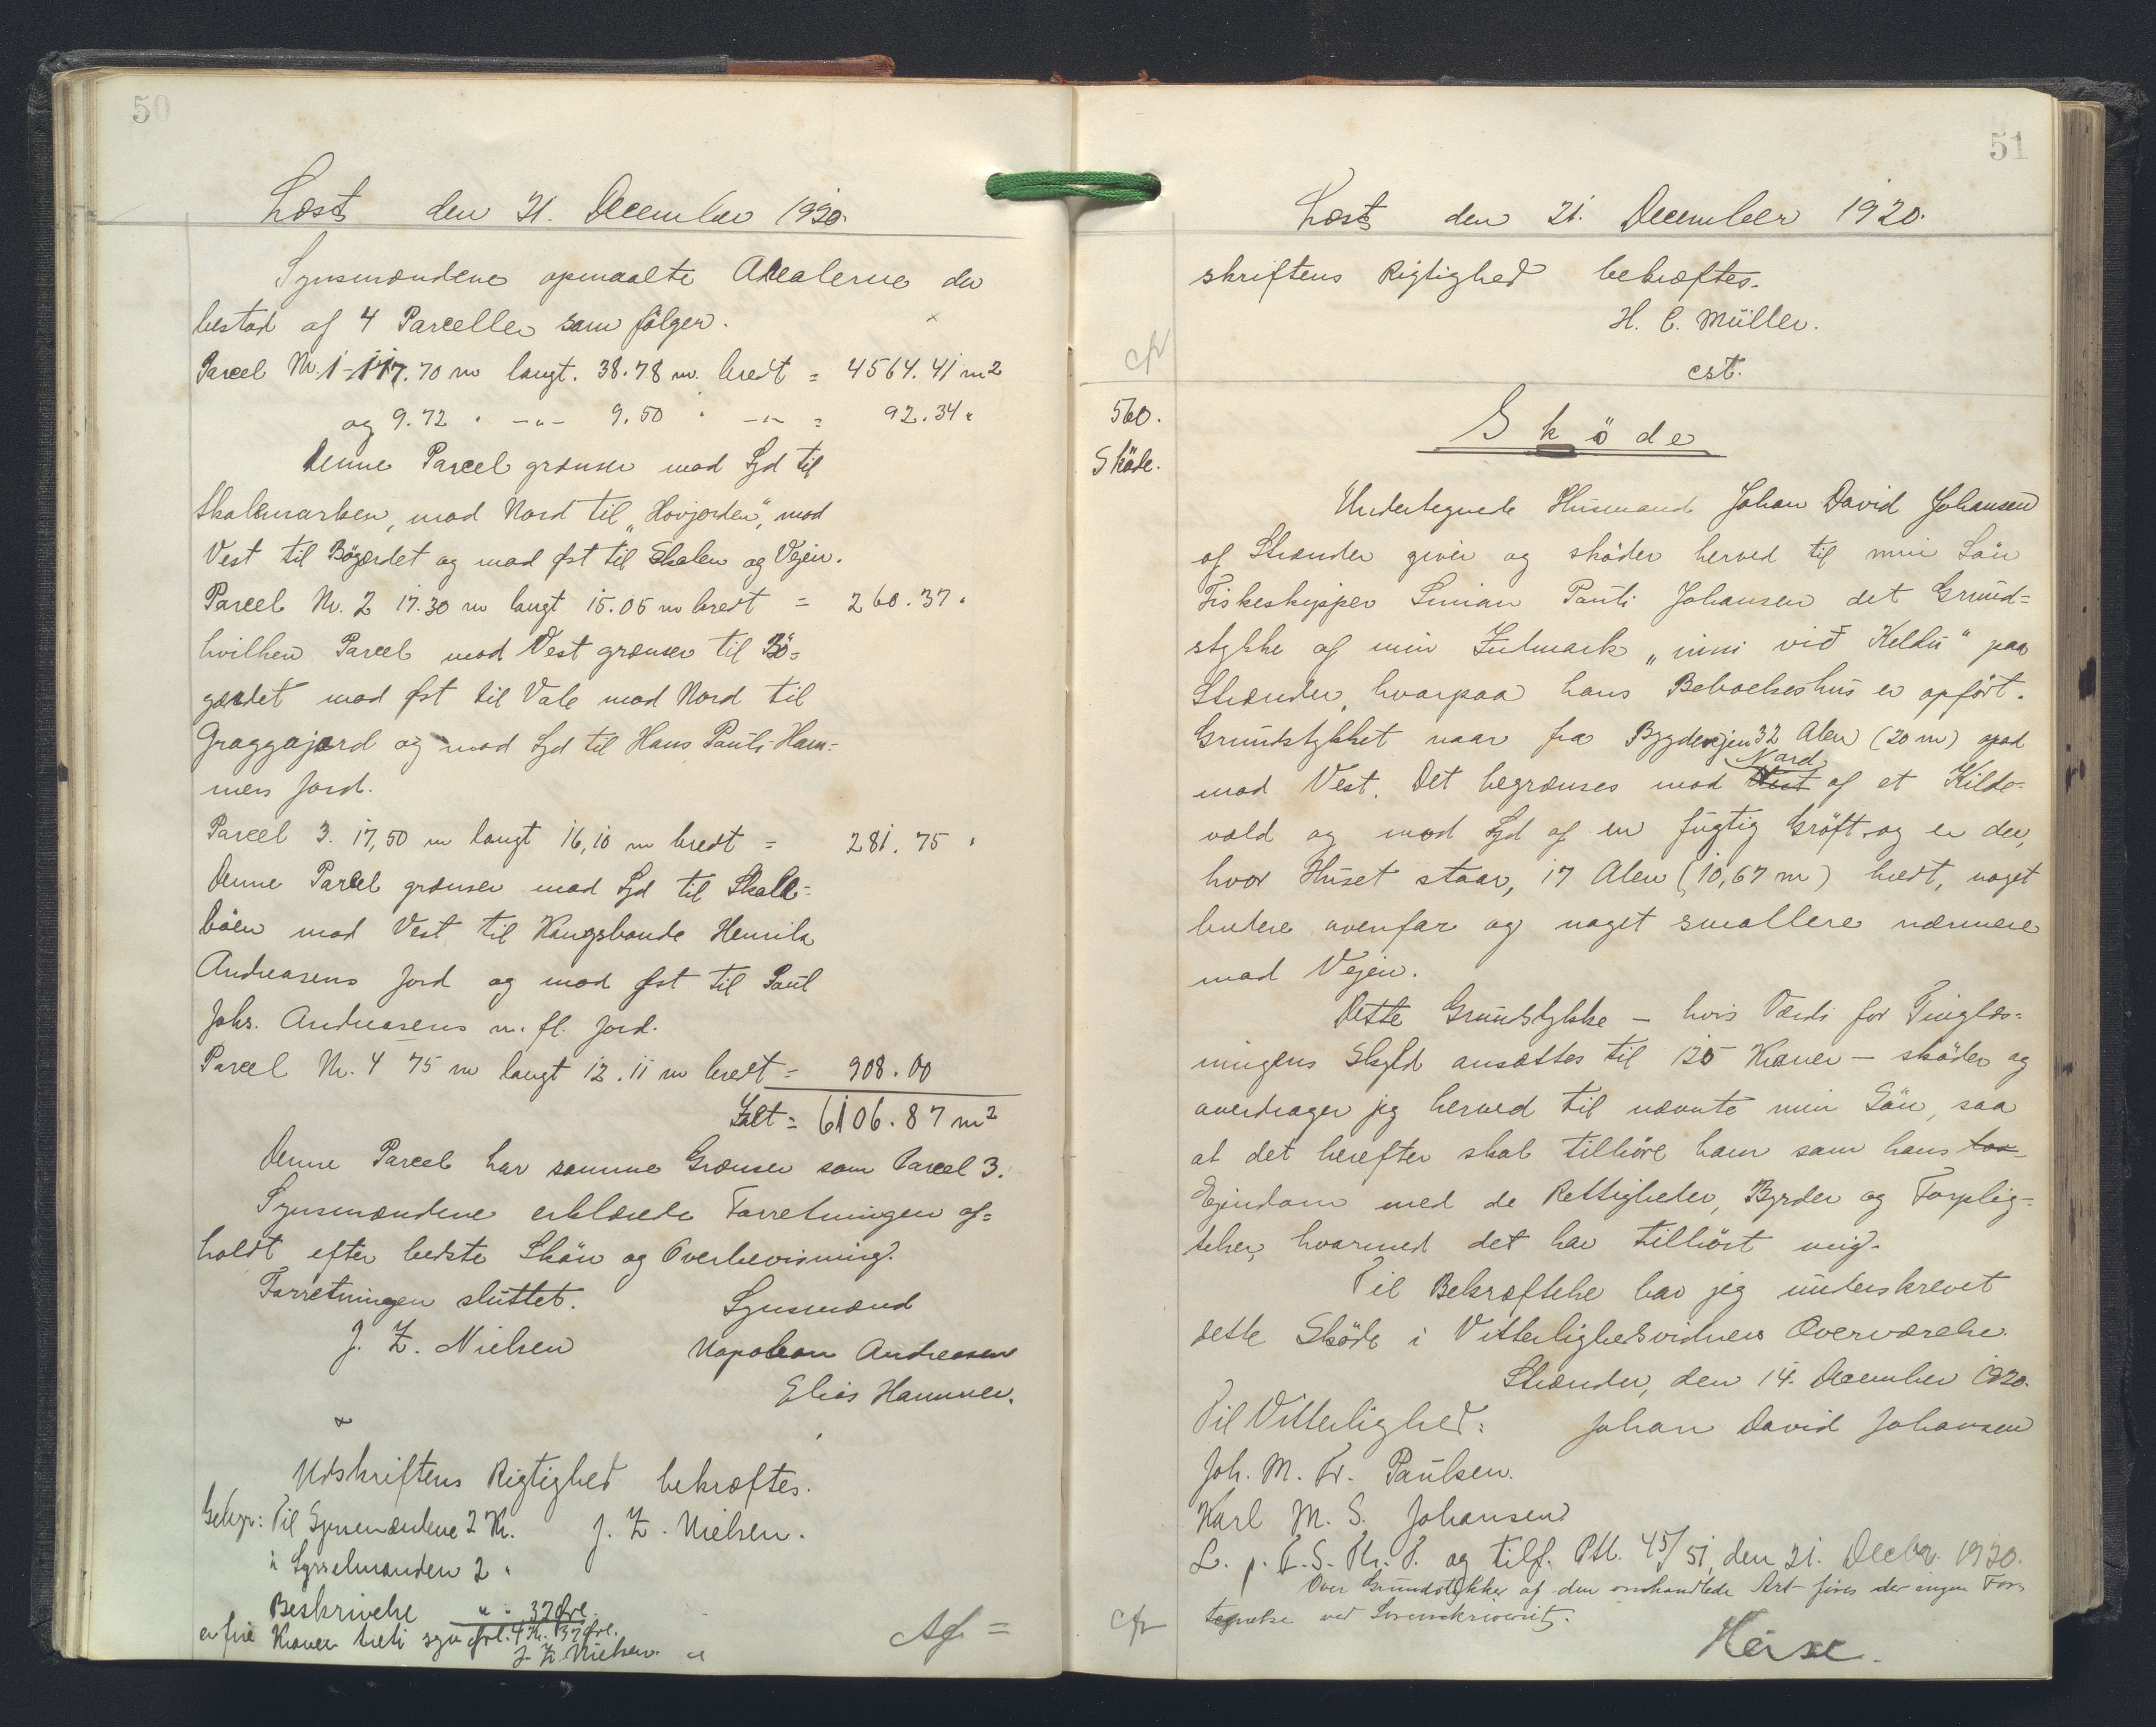 50
Læst den 21. December 1920.
Synsmændene opmaalte Arealerne der
bestod af 4 Parceller som følger.
Parcel Nr. 1 - 117.70 m langt. 38.78 m. bredt = 4564.41 m2
og 9.72 " -"- 9.50 " -"- = 92.34 "
Denne Parcel grænser mod Syd til
Skalemarken, mod Nord til "Hovjorden", mod
Vest til Bögærdet og mod Øst til Skolen og Vejen.
Parcel Nr. 2 17.30 m langt 15.05 m bredt = 260.37 "
hvilken Parcel mod Vest grænser til Bö=
gærdet mod Øst til Vale mod Nord til
Graggajord og mod Syd til Hans Pauli Ham=
mers Jord.
Parcel 3. 17,50 m langt 16,10 m bredt = 281.75 "
Denne Parcel grænser mod Syd til Skale=
böen mod Vest til Kongsbonde Henrik
Andreasens Jord og mod Øst til Paul
Johs. Andreasens m. fl. Jord.
Parcel Nr. 4 75 m langt 12.11 m bredt = 908.00
Ialt = 6106.87 m2
Denne Parcel har samme Grænser som Parcel 3.
Synsmændene erklærede Forretningen af=
holdt efter bedste Skön og Overbevisning.
Forretningen sluttet. Synsmænd
J. Z. Nielsen Napoleon Andreasen
Elias Hammer.
Udskriftens Rigtighed bekræftes.
Gebyr: Til Synsmændene 2 Kr. J. Z. Nielsen.
" Sysselmanden 2 "
Beskrivelse " " 37 Øre.
er fire Kroner treti syv Øre. 4 Kr. 37 Øre.
J. Z. Nielsen
51
Læst den 21. December 1920.
skriftens Rigtighed bekræftes.
H. C. Müller.
cst.
cfr
560.
Sköde.
Sköde
Undertegnede Husmand Johan David Johansen
af Strænder giver og sköder herved til min Sön
Fiskeskipper Simian Pauli Johansen det Grund=
stykke af min Indmark "inni við Keldu" paa
Strænder, hvorpaa hans Beboelseshus er opfört.
Grundstykket naar fra Bygdevejen 32 Alen (20 m) opad
Nord
mod Vest. Det begrænses mod Vest af et Kilde=
vald og mod Syd af en fugtig Gröft og er der,
hvor Huset staar, 17 Alen (10,67 m) bredt, noget
bredere ovenfor og noget smallere nærmere
mod Vejen.
Dette Grundstykke - hvis Værdi for Tinglæs=
ningens Skyld ansættes til 125 Kroner - sköder og
overdrager jeg herved til nævnte min Sön, saa
at det herefter skal tilhöre ham som hans
Ejendom med de Rettigheder, Byrder og Forplig=
telser, hvormed det har tilhört mig.
Til Bekræftelse har jeg underskrevet
dette Sköde i Vitterlighedsvidners Overværelse.
Strænder, den 14. December 1920.
Til Vitterlighed: Johan David Johansen
Joh. M. Fr. Paulsen.
Karl M. S. Johansen
L. p. E. S. Kr. P. og tilf. Ptl. 45/51, den 21. Decbr. 1920.
Over Grundstykker af den omhandlede Art föres der ingen For=
tegnelse ved Sorenskriveriet.
cfr
Heise.